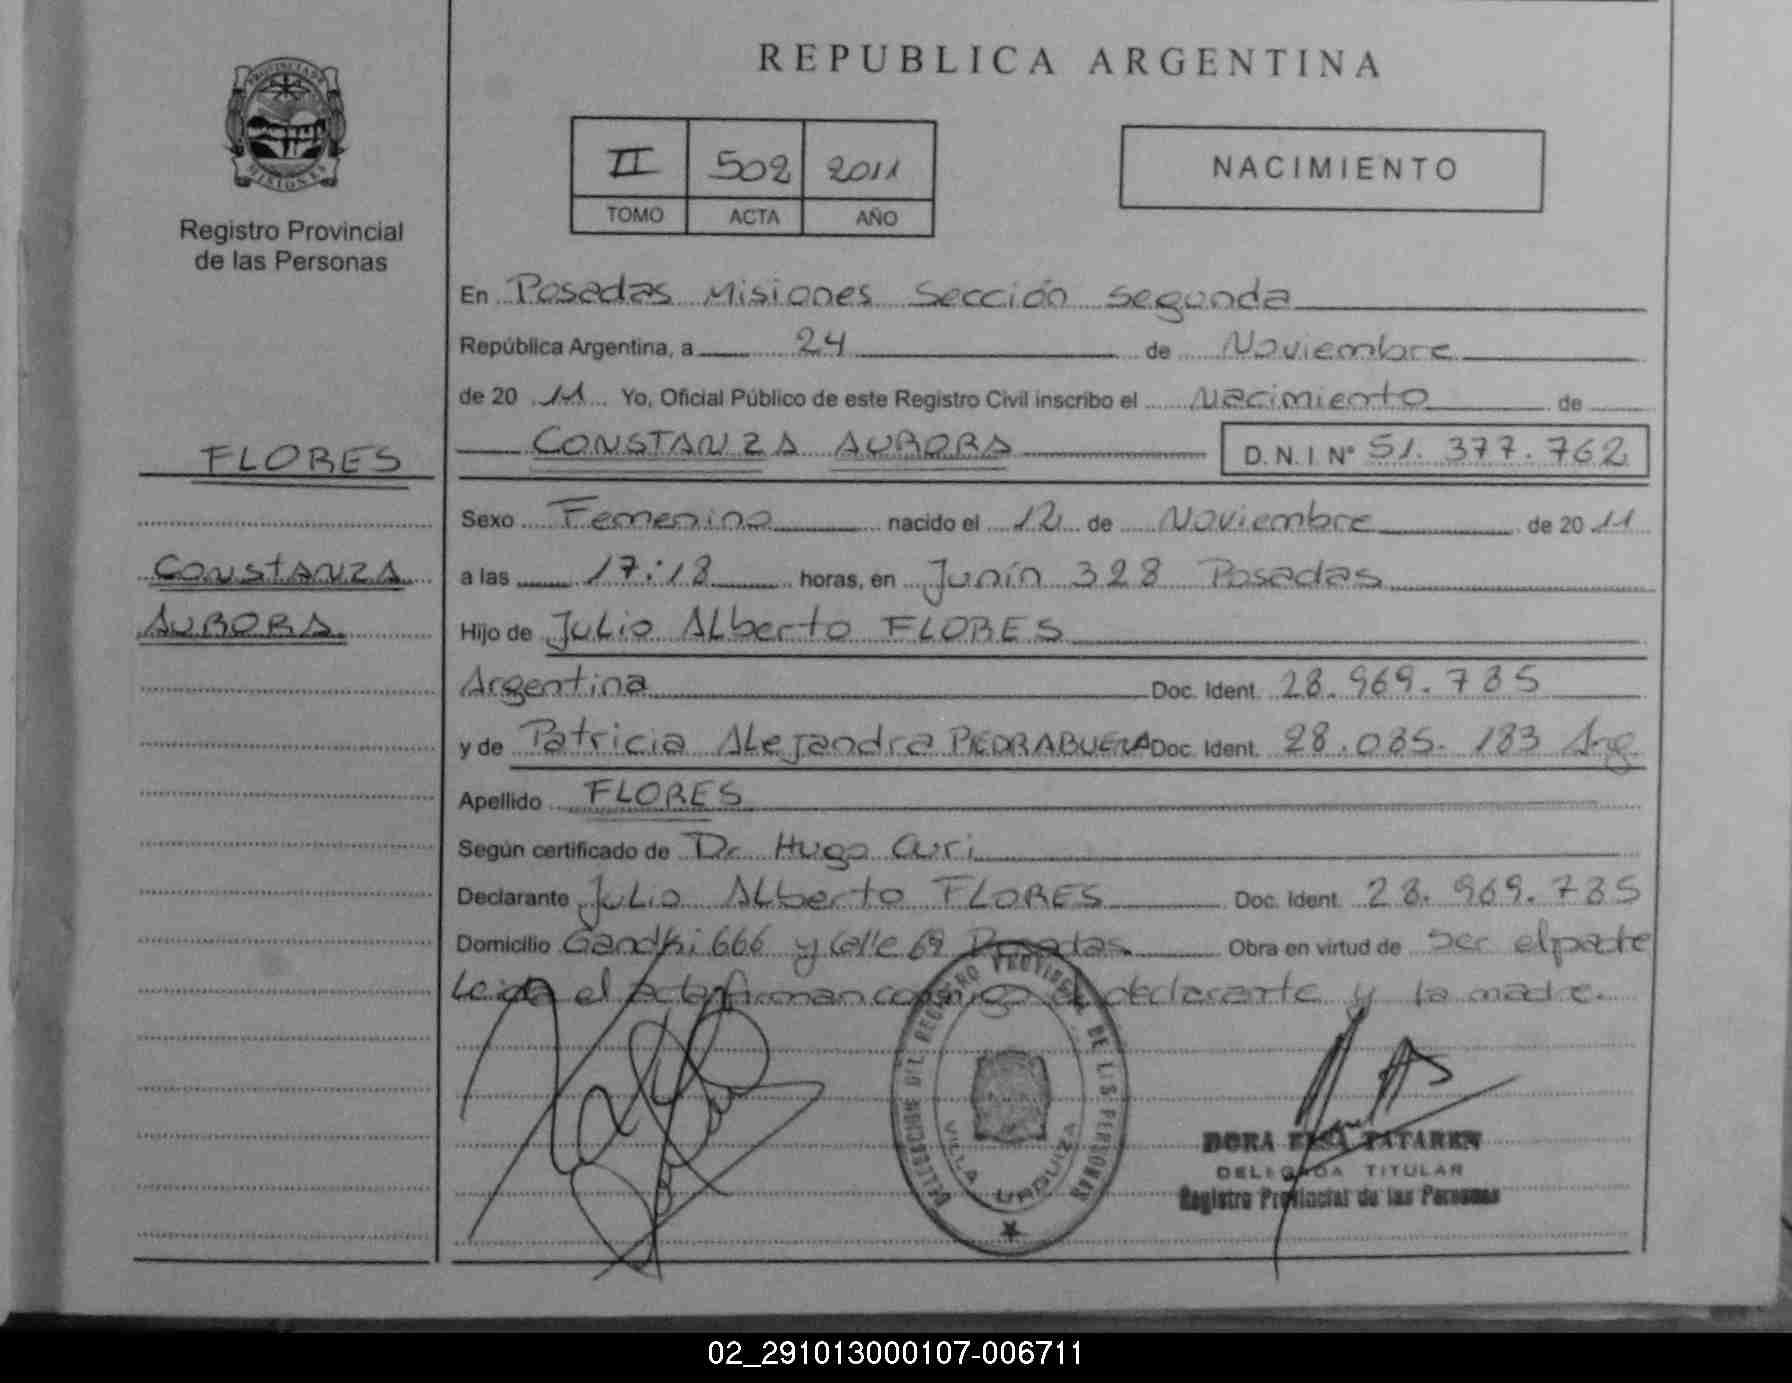 REPUBLICA ARGENTINA
PROVINCIA DE MISIONES
Registro Provincial
de las Personas
II 502 2011
TOMO ACTA AÑO
NACIMIENTO
En Posadas Misiones Sección segunda
República Argentina, a 24 de Noviembre
de 20 11 Yo, Oficial Público de este Registro Civil inscribo el Nacimiento de
CONSTANZA AURORA D. N. I. Nº 51.377.762
FLORES
CONSTANZA
AURORA
Sexo Femenino nacido el 12 de Noviembre de 20 11
a las 17:18 horas, en Junín 328 Posadas
Hijo de Julio Alberto FLORES
Argentina Doc. Ident. 28.969.785
y de Patricia Alejandra PIEDRABUENA Doc. Ident. 28.085.183 Arg.
Apellido FLORES
Según certificado de Dr. Hugo Curi
Declarante Julio Alberto FLORES Doc. Ident. 28.969.785
Domicilio Gandhi 666 y Calle 69 Posadas Obra en virtud de ser el padre
Leida el acta firman conmigo el declarante y la madre.
DELEGACION DEL REGISTRO PROVINCIAL DE LAS PERSONAS
VILLA URQUIZA
DORA ELSA TATAREN
DELEGADA TITULAR
Registro Provincial de las Personas
02_291013000107-006711